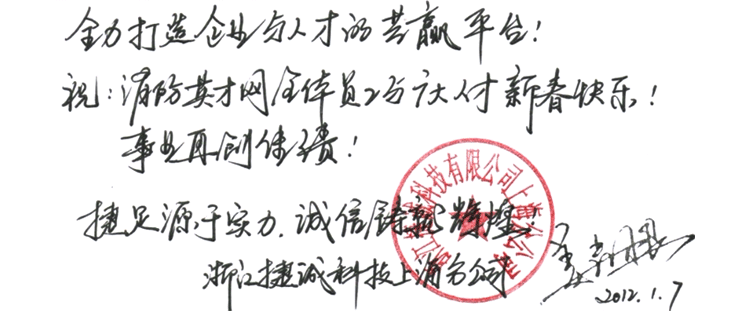 全力打造企业与人才的共赢平台!
祝:消防英才网全体员工与广大人才新春快乐!
事业再创佳绩!
捷足源于实力,诚信铸就辉煌
浙江捷诚科技上海分公司
浙江捷诚科技有限公司上海分公司
2012.1.7